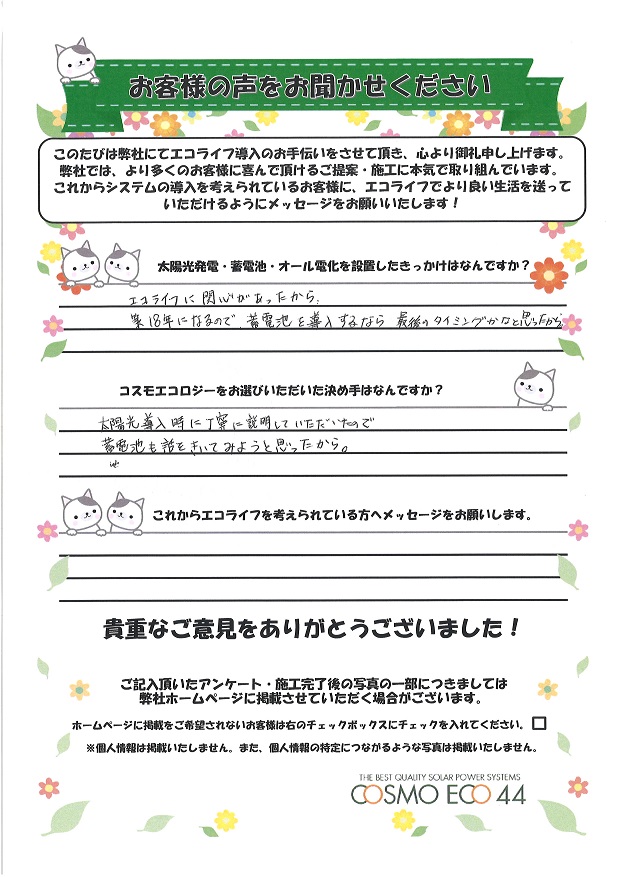 お客様の声をお聞かせください
このたびは弊社にてエコライフ導入のお手伝いをさせて頂き、心より御礼申し上げます。
弊社では、より多くのお客様に喜んで頂けるご提案・施工に本気で取り組んでいます。
これからシステムの導入を考えられているお客様に、エコライフでより良い生活を送って
いただけるようにメッセージをお願いいたします！
太陽光発電・蓄電池・オール電化を設置したきっかけはなんですか？
エコライフに関心があったから、
築18年になるので、蓄電池を導入するなら 最後のタイミングかなと思ったから
コスモエコロジーをお選びいただいた決め手はなんですか？
太陽光導入時に丁寧に説明していただいたので
蓄電池も話をきいてみようと思ったから。
これからエコライフを考えられている方へメッセージをお願いします。
貴重なご意見をありがとうございました！
ご記入頂いたアンケート・施工完了後の写真の一部につきましては
弊社ホームページに掲載させていただく場合がございます。
ホームページに掲載をご希望されないお客様は右のチェックボックスにチェックを入れてください。
※個人情報は掲載いたしません。また、個人情報の特定につながるような写真は掲載いたしません。
THE BEST QUALITY SOLAR POWER SYSTEMS
COSMO ECO 44